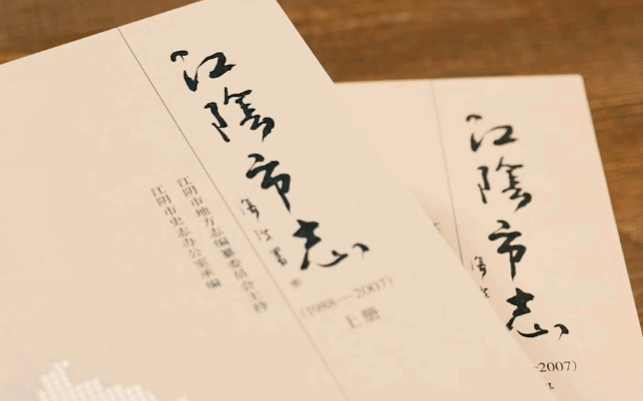 江陰市志
江阴市地方志编纂委员会主持
江阴市史志办公室承编
(1988—2007)
上册
江陰市志
-2007)